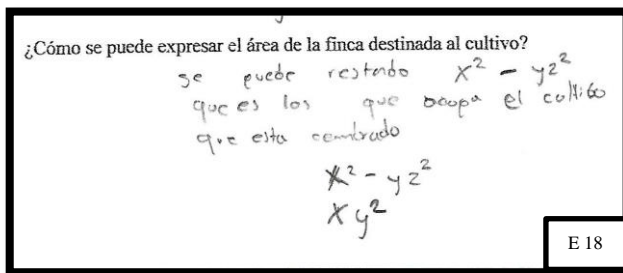 ¿Cómo se puede expresar el área de la finca destinada al cultivo?
se puede restando x² - yz²
que es los que ocupa el cultibo
que esta cembrado
x² - yz²
xy²
E 18